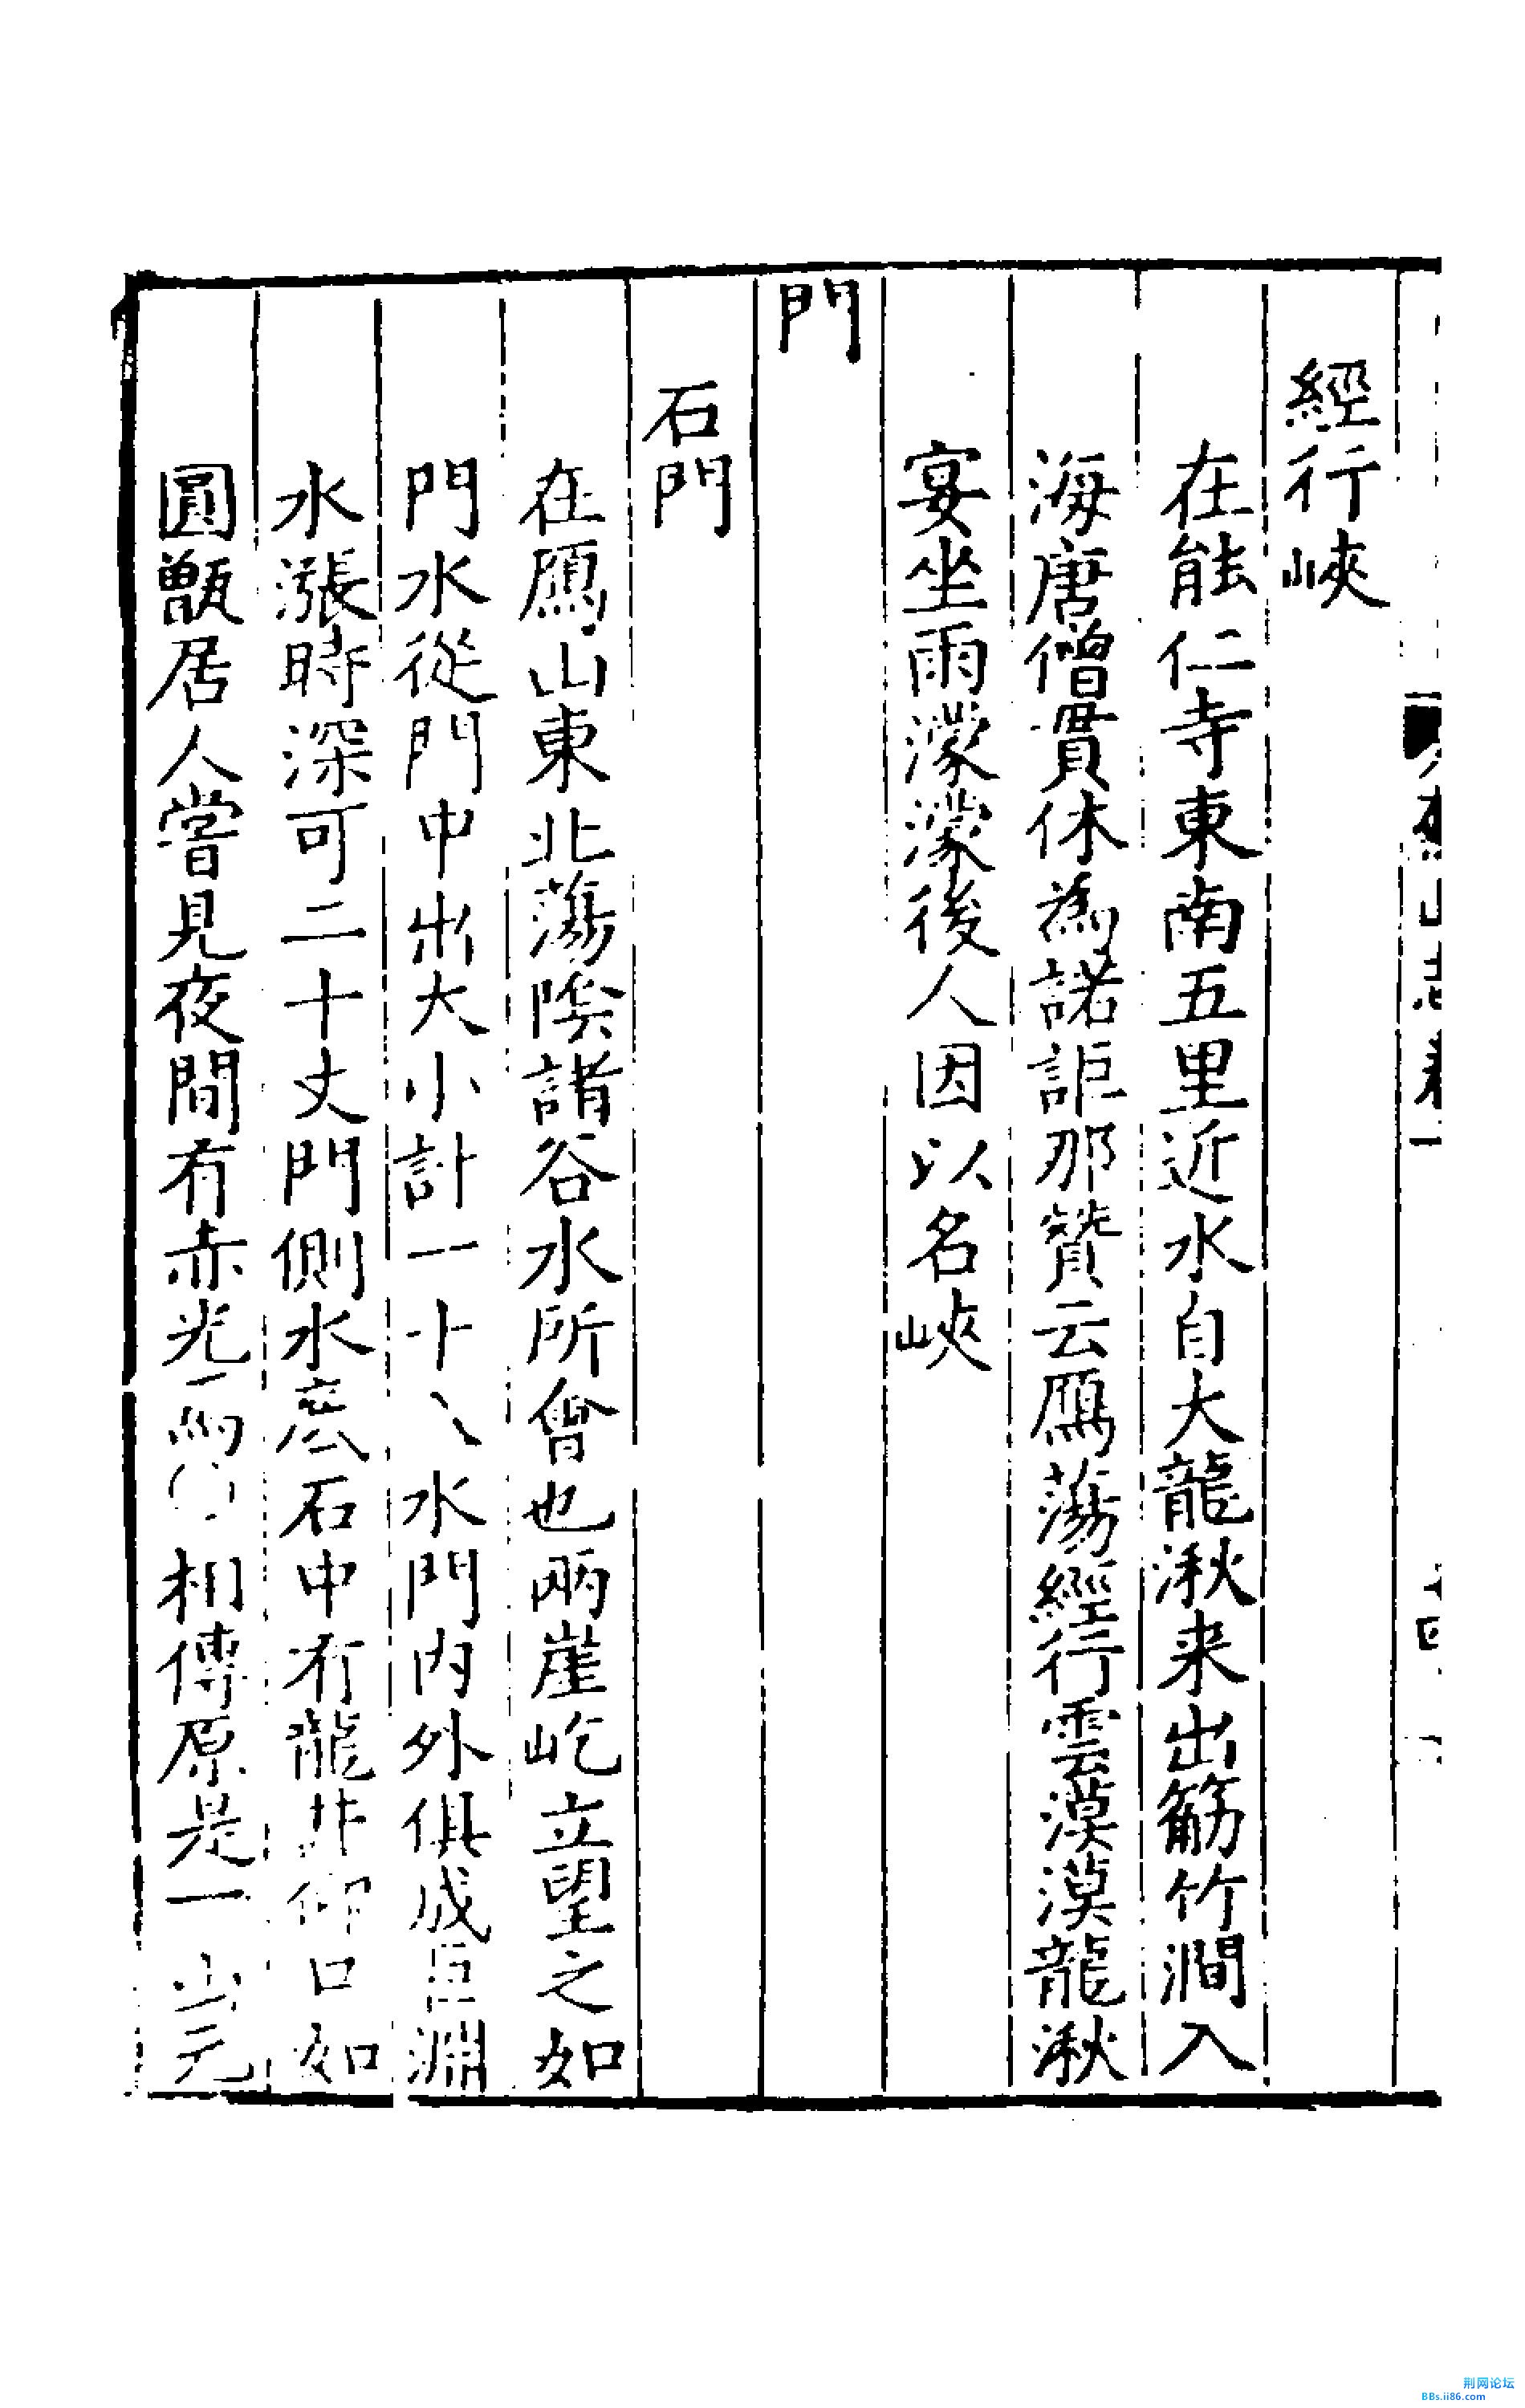 經行峽
在能仁寺東南五里近水自大龍湫来出筋竹澗入
海唐僧貫休為諾詎那贊云鴈蕩經行雲漠漠龍湫
宴坐雨濛濛後人因以名峽
門
石門
在鴈山東北蕩陰諸谷水所會也兩崖屹立望之如
門水從門中出大小計一十八水門内外俱成巨淵
水漲時深可二十丈門側水底石中有龍井仰口如
圓甑居人嘗見夜間有赤光 相傳原是一山元
荆网论坛
BBs.ii86.com